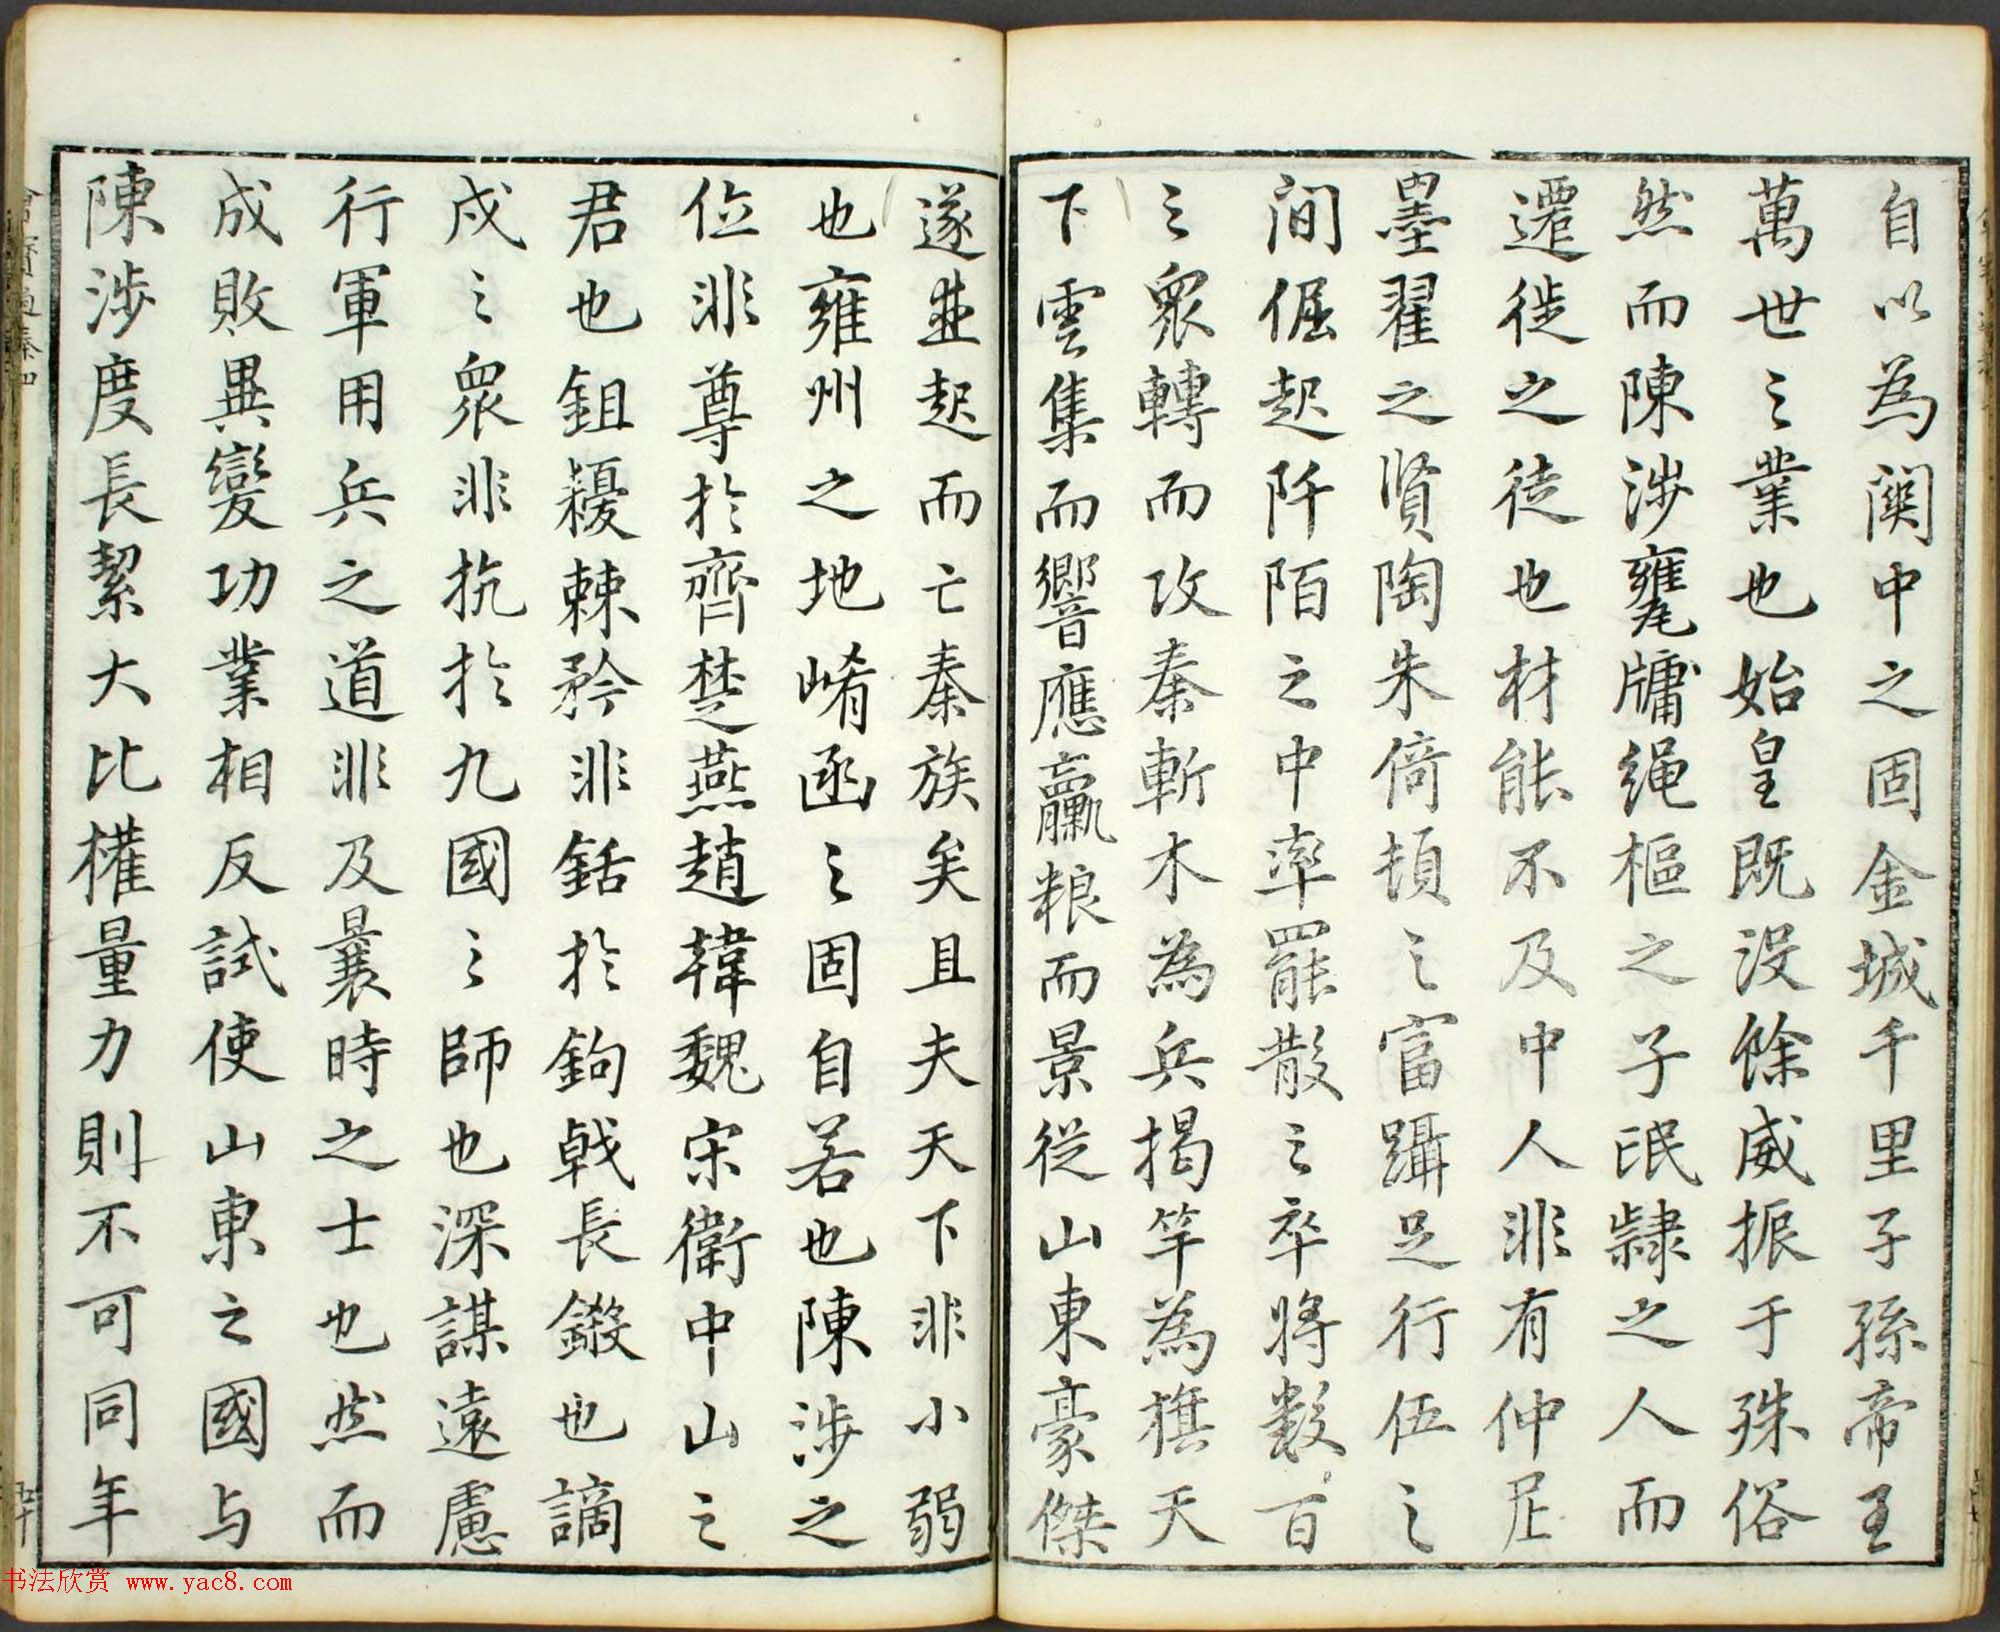 自以為関中之固金城千里子孫帝王
萬世之業也始皇既没餘威振于殊俗
然而陳涉甕牖绳樞之子氓隷之人而
遷徙之徒也材能不及中人非有仲尼
墨翟之賢陶朱倚頓之富躡足行伍之
間倔起阡陌之中率罷散之卒将数百
之衆轉而攻秦斬木為兵揭竿為旗天
下雲集而響應贏粮而景從山東豪傑
遂並起而亡秦族矣且夫天下非小弱
也雍州之地崤函之固自若也陳涉之
位非尊於齊楚燕趙韓魏宋衛中山之
君也鉏耰棘矜非銛於鉤戟長鎩也謫
戍之衆非抗於九國之師也深謀遠慮
行軍用兵之道非及曩時之士也然而
成敗異變功業相反試使山東之國与
陳涉度長絜大比權量力則不可同年
书法欣赏 www.yac8.com